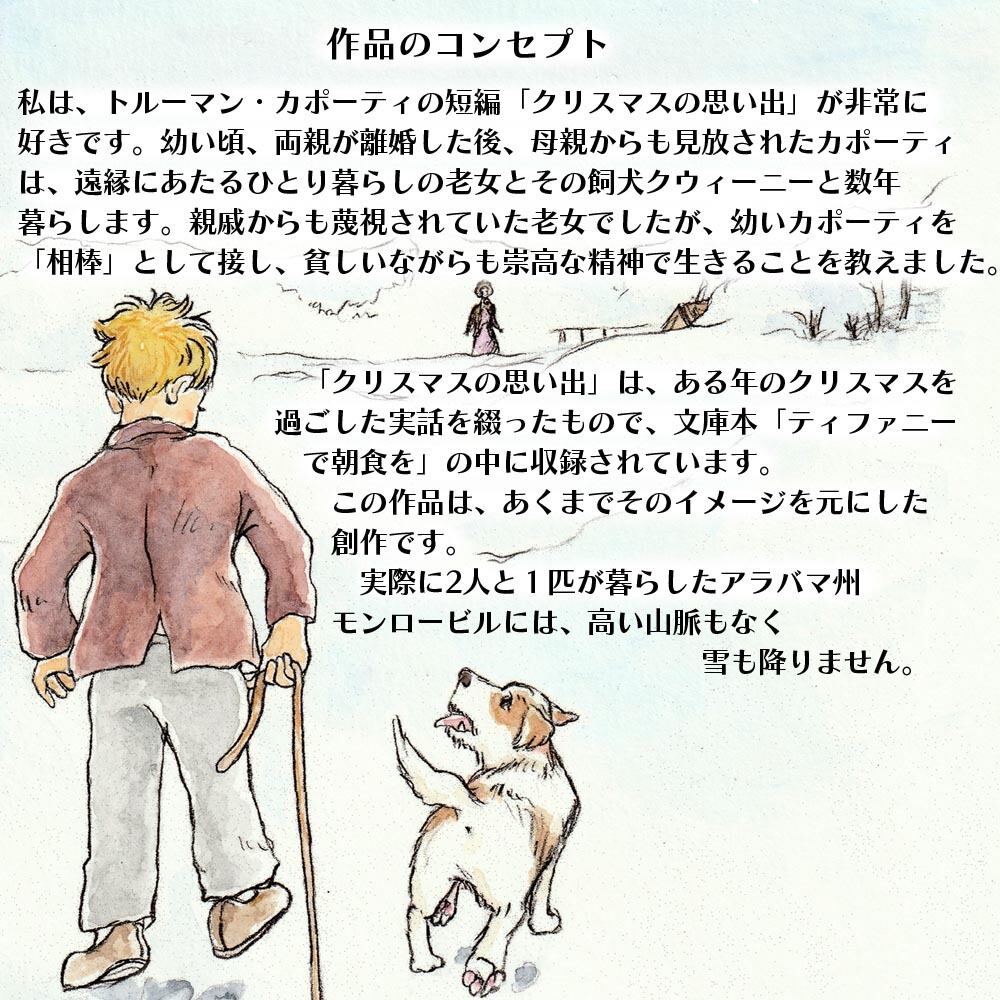 作品のコンセプト
私は、トルーマン・カポーティの短編「クリスマスの思い出」が非常に
好きです。幼い頃、両親が離婚した後、母親からも見放されたカポーティ
は、遠縁にあたるひとり暮らしの老女とその飼犬クウィーニーと数年
暮らします。親戚からも蔑視されていた老女でしたが、幼いカポーティを
「相棒」として接し、貧しいながらも崇高な精神で生きることを教えました。
「クリスマスの思い出」は、ある年のクリスマスを
過ごした実話を綴ったもので、文庫本「ティファニー
で朝食を」の中に収録されています。
この作品は、あくまでそのイメージを元にした
創作です。
実際に2人と１匹が暮らしたアラバマ州
モンロービルには、高い山脈もなく
雪も降りません。